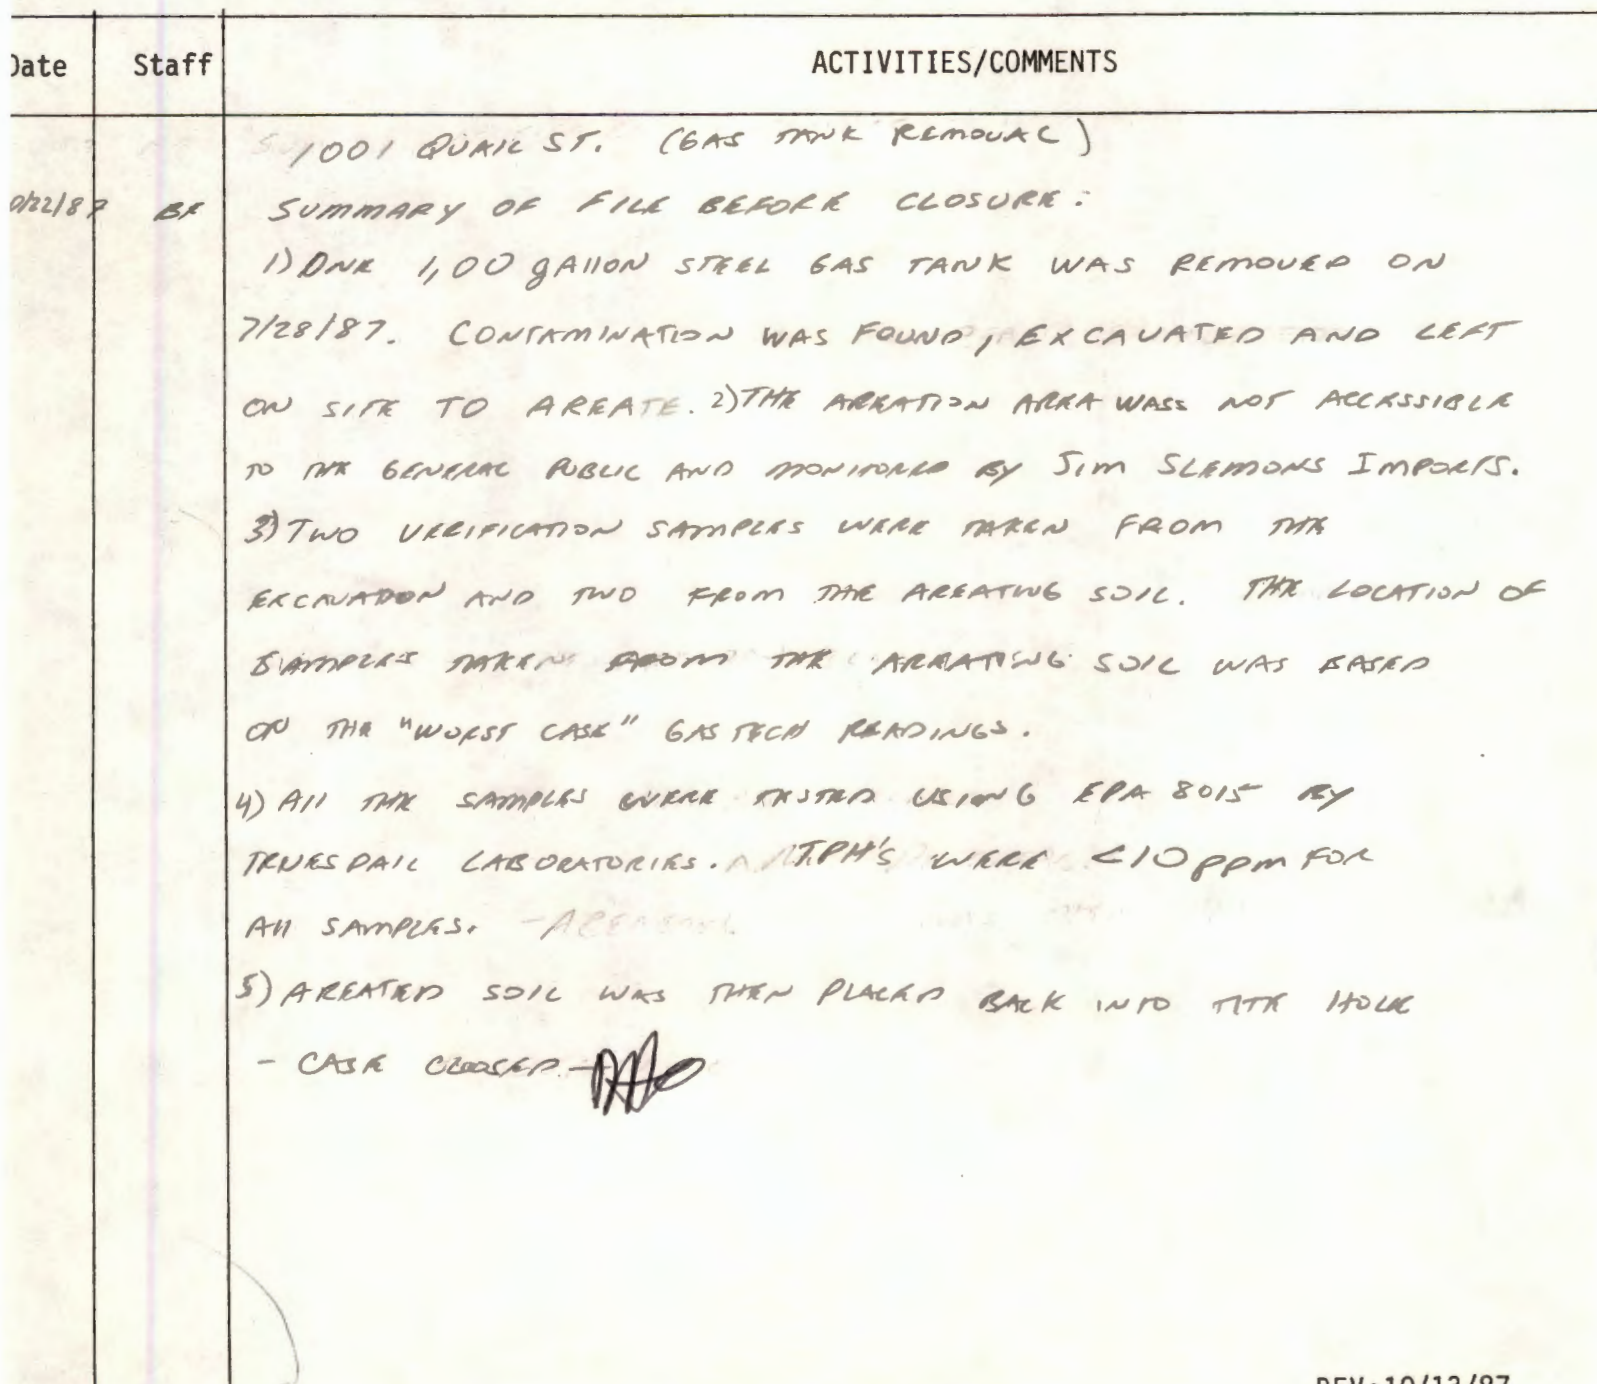 Date Staff ACTIVITIES/COMMENTS
1001 QUAIL ST. (GAS TANK REMOVAL)
0/22/87 BF SUMMARY OF FILE BEFORE CLOSURE:
1) ONE 1,00 gAllON STEEL GAS TANK WAS REMOVED ON
7/28/87. CONTAMINATION WAS FOUND, EXCAVATED AND LEFT
ON SITE TO AREATE. 2) THE AREATION AREA WASS NOT ACCESSIBLE
TO THE GENERAL PUBLIC AND MONITORED BY JIM SLEMONS IMPORTS.
3) TWO VERIFICATION SAMPLES WERE TAKEN FROM THE
EXCAVATION AND TWO FROM THE AREATING SOIL. THE LOCATION OF
SAMPLES TAKEN FROM THE AREATING SOIL WAS BASED
ON THE "WORST CASE" GASTECH READINGS.
4) All THE SAMPLES WERE TESTED USING EPA 8015 BY
TRUESDAIL LABORATORIES. TPH'S WERE <10 ppm FOR
All SAMPLES.
5) AREATED SOIL WAS THEN PLACED BACK INTO THE HOLE
- CASE CLOSED -
REV:10/13/87